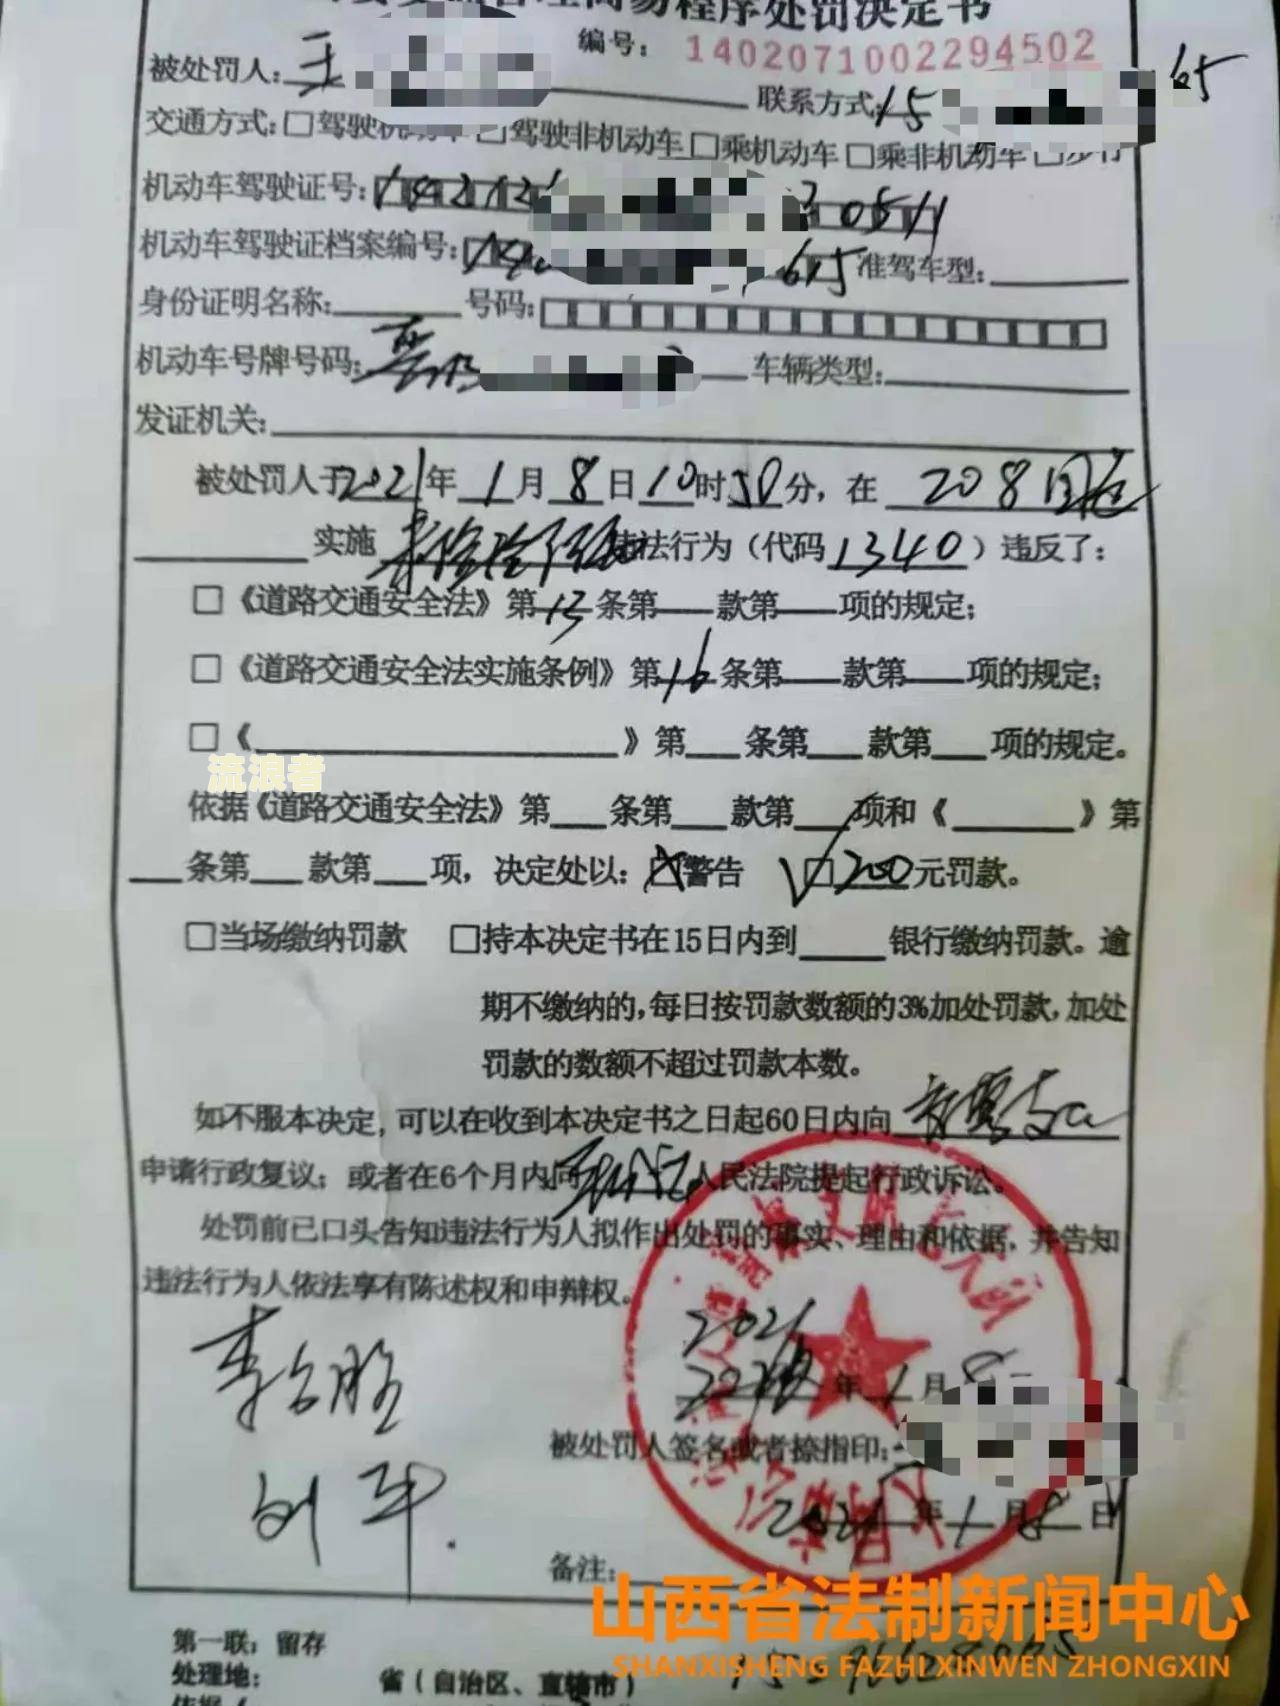 管理简易程序处罚决定书
编号：1402071002294502
被处罚人：王 联系方式：15 65
交通方式：□驾驶机动车 □驾驶非机动车 □乘机动车 □乘非机动车 □步行
机动车驾驶证号：142121 30511
机动车驾驶证档案编号：14 615 准驾车型：
身份证明名称： 号码：
机动车号牌号码：晋 车辆类型：
发证机关：
被处罚人于2021年1月8日10时50分，在 208国道
实施 违法行为（代码1340）违反了：
□《道路交通安全法》第13条第 款第 项的规定；
□《道路交通安全法实施条例》第16条第 款第 项的规定；
□《 》第 条第 款第 项的规定。
流浪者
依据《道路交通安全法》第 条第 款第 项和《 》第
条第 款第 项，决定处以：□警告 √□200元罚款。
□当场缴纳罚款 □持本决定书在15日内到 银行缴纳罚款。逾
期不缴纳的，每日按罚款数额的3%加处罚款，加处
罚款的数额不超过罚款本数。
如不服本决定，可以在收到本决定书之日起60日内向
申请行政复议；或者在6个月内向 人民法院提起行政诉讼。
处罚前已口头告知违法行为人拟作出处罚的事实、理由和依据，并告知
违法行为人依法享有陈述权和申辩权。
2021
年1月8
被处罚人签名或者捺指印：
2021年1月8日
刘军.
备注：
山西省法制新闻中心
SHANXISHENG FAZHI XINWEN ZHONGXIN
第一联：留存
处理地： 省（自治区、直辖市）